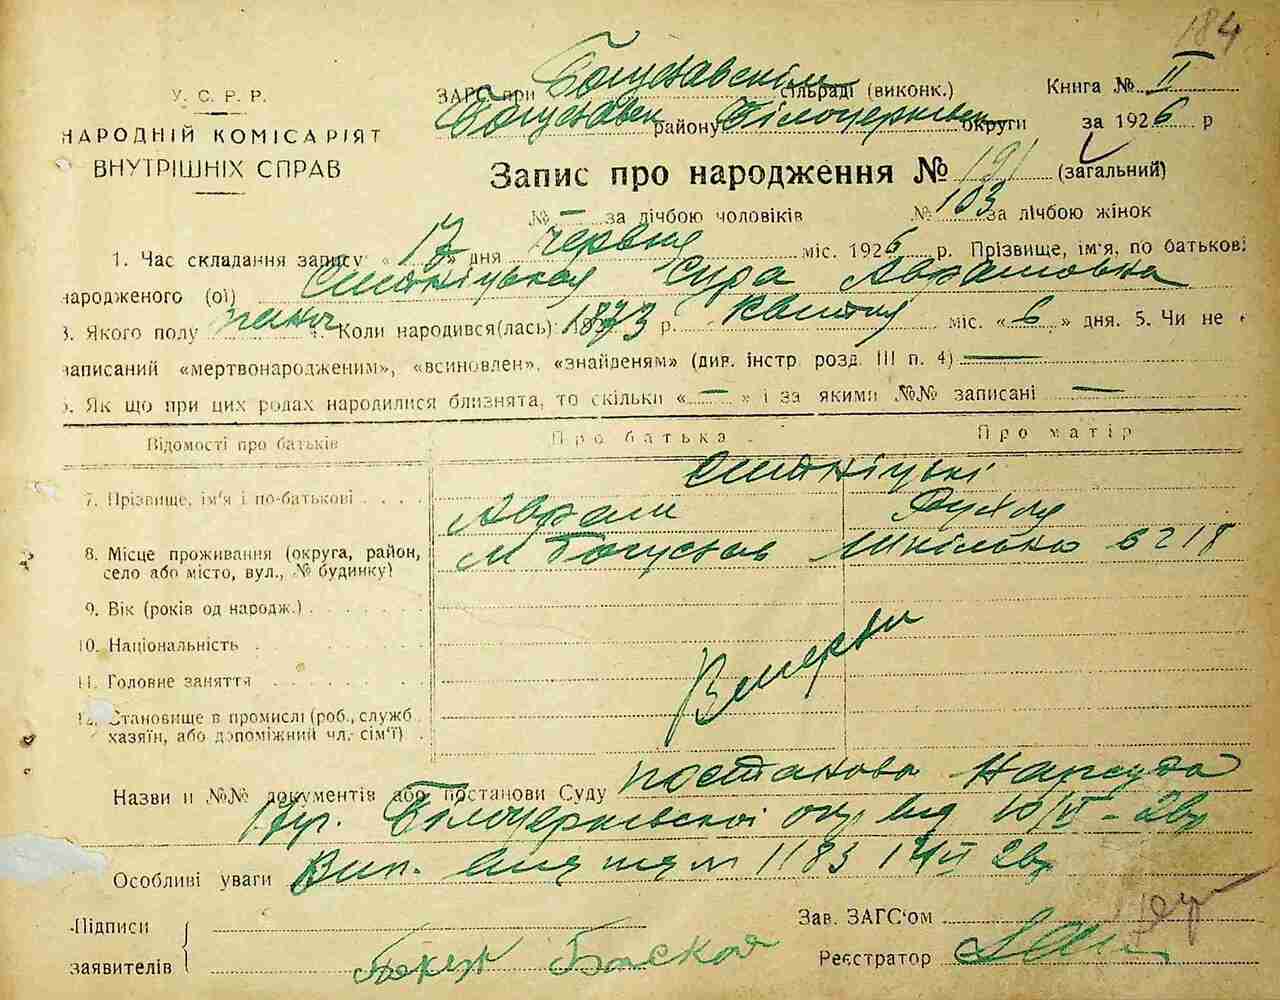 184
У. С. Р. Р.
НАРОДНІЙ КОМІСАРІЯТ
ВНУТРІШНІХ СПРАВ
ЗАГС при Богуславськім сільраді (виконк.) Книга № II
Богуславськ району Білоцерківськ округи за 1926 р
Запис про народження № 191 (загальний)
№ — за лічбою чоловіків № 103 за лічбою жінок
1. Час складання запису „17" дня червня міс. 1926 р. Прізвище, ім'я, по батькові
народженого (ої) Сура Аврамовна
3. Якого полу жіноч 4. Коли народився(лась): 1873 р. Квітня міс. «6» дня. 5. Чи не
записаний «мертвонародженим», «всиновлен», «знайденям» (див. інстр. розд. III п. 4) —
6. Як що при цих родах народилися близнята, то скільки « — » і за якими №№ записані —
Відомості про батьків Про батька Про матір
7. Прізвище, ім'я і по-батькові
Аврам Рухля
8. Місце проживання (округа, район,
село або місто, вул., № будинку)
м Богуслав Шкільна 218
9. Вік (років од народж.)
10. Національність
11. Головне заняття
12. Становище в промислі (роб., служб.
хазяїн, або допоміжний чл. сім'ї)
Вмерли
Назви и №№ документів або постанови Суду постанова Нарсуда
Білоцерківської окр від 10/VI-26р
Особливі уваги Вип. 1183 26р
Підписи
заявителів
Зав. ЗАГС'ом
Реєстратор